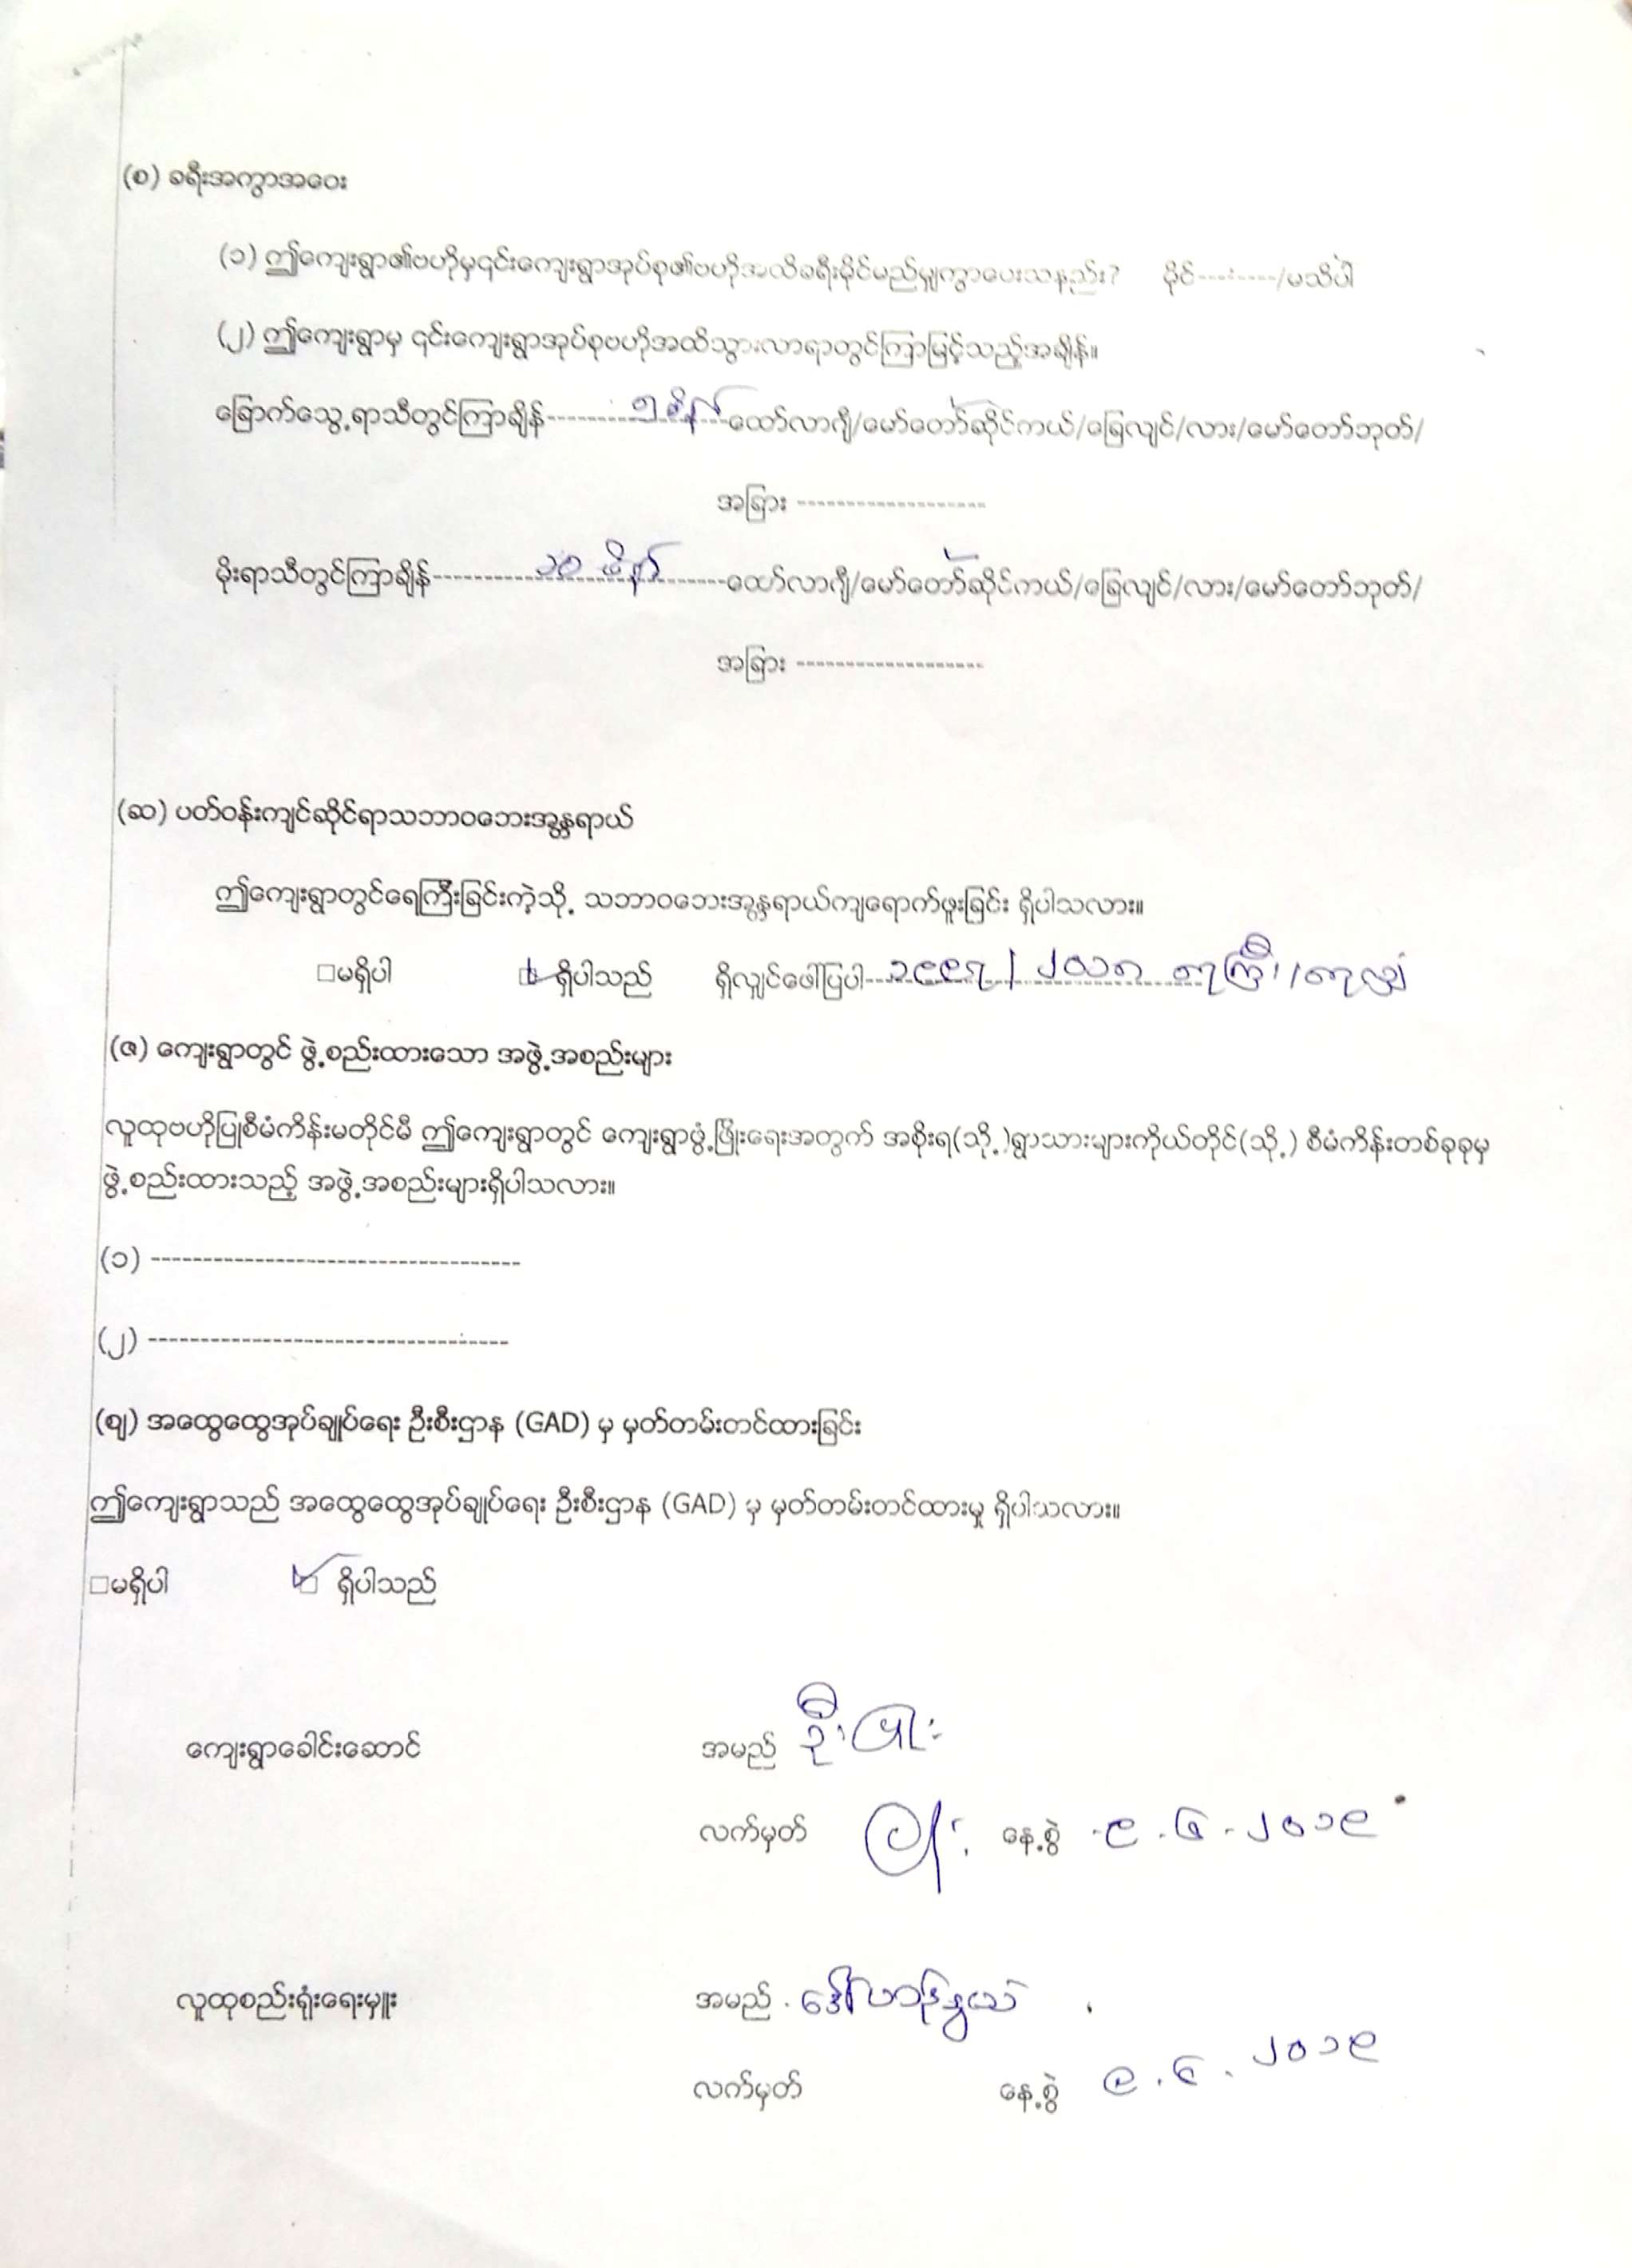 (စ) ခရီးအကွာအဝေး
(၁) ဤကျေးရွာ၏ဗဟိုမှ၎င်းကျေးရွာအုပ်စု၏ဗဟိုအထိခရီးမိုင်မည်မျှကွာဝေးသနည်း? မိုင်--------/မသိပါ
(၂) ဤကျေးရွာမှ ၎င်းကျေးရွာအုပ်စုဗဟိုအထိသွားလာရာတွင်ကြာမြင့်သည့်အချိန်။
ခြောက်သွေ့ရာသီတွင်ကြာချိန်------------၅ မိနစ်---ထော်လာဂျီ/မော်တော်ဆိုင်ကယ်/ခြေလျင်/လား/မော်တော်ဘုတ်/
အခြား -------------------
မိုးရာသီတွင်ကြာချိန်-----------၁၀ မိနစ်-------ထော်လာဂျီ/မော်တော်ဆိုင်ကယ်/ခြေလျင်/လား/မော်တော်ဘုတ်/
အခြား -------------------
(ဆ) ပတ်ဝန်းကျင်ဆိုင်ရာသဘာဝဘေးအန္တရာယ်
ဤကျေးရွာတွင်ရေကြီးခြင်းကဲ့သို့ သဘာဝဘေးအန္တရာယ်ကျရောက်ဖူးခြင်း ရှိပါသလား။
□မရှိပါ ☑ရှိပါသည် ရှိလျှင်ဖေါ်ပြပါ---၁၉၉၇ / ၂၀၁၅ ရေကြီး / ရေလျှံ
(ဇ) ကျေးရွာတွင် ဖွဲ့စည်းထားသော အဖွဲ့အစည်းများ
လူထုဗဟိုပြုစီမံကိန်းမတိုင်မီ ဤကျေးရွာတွင် ကျေးရွာဖွံ့ဖြိုးရေးအတွက် အစိုးရ(သို့)ရွာသားများကိုယ်တိုင်(သို့) စီမံကိန်းတစ်ခုခုမှ
ဖွဲ့စည်းထားသည့် အဖွဲ့အစည်းများရှိပါသလား။
(၁) ------------------------------------
(၂) -----------------------------------
(ဈ) အထွေထွေအုပ်ချုပ်ရေး ဦးစီးဌာန (GAD) မှ မှတ်တမ်းတင်ထားခြင်း
ဤကျေးရွာသည် အထွေထွေအုပ်ချုပ်ရေး ဦးစီးဌာန (GAD) မှ မှတ်တမ်းတင်ထားမှု ရှိပါသလား။
□မရှိပါ ☑ ရှိပါသည်
ကျေးရွာခေါင်းဆောင် အမည် ဦး
လက်မှတ် နေ့စွဲ ၉.၆.၂၀၁၉
လူထုစည်းရုံးရေးမှူး အမည် ဒေါ်
လက်မှတ် နေ့စွဲ ၉.၆.၂၀၁၉